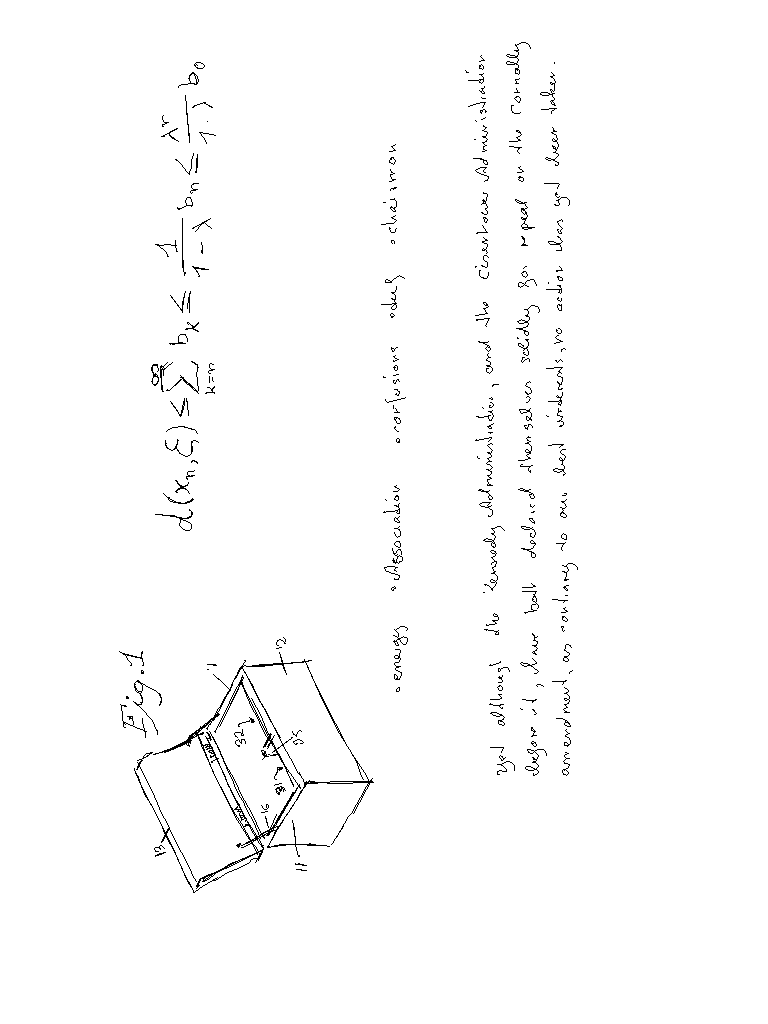 Fig. 1
13
1
32
31
25
16
11
12
d(xₙ, ξ) ≤ ∑_{k=n}^{∞} bₖ ≤ 1/(1-λ) bₙ ≤ λⁿ/(1-λ) b₀
• energy • Association • confusions • def • chairman
yet although the Kennedy Administration, and the Eisenhower Administration
before it, have both declared themselves solidly for repeal on the Connally
amendment, as contrary to our best interests, no action has yet been taken.